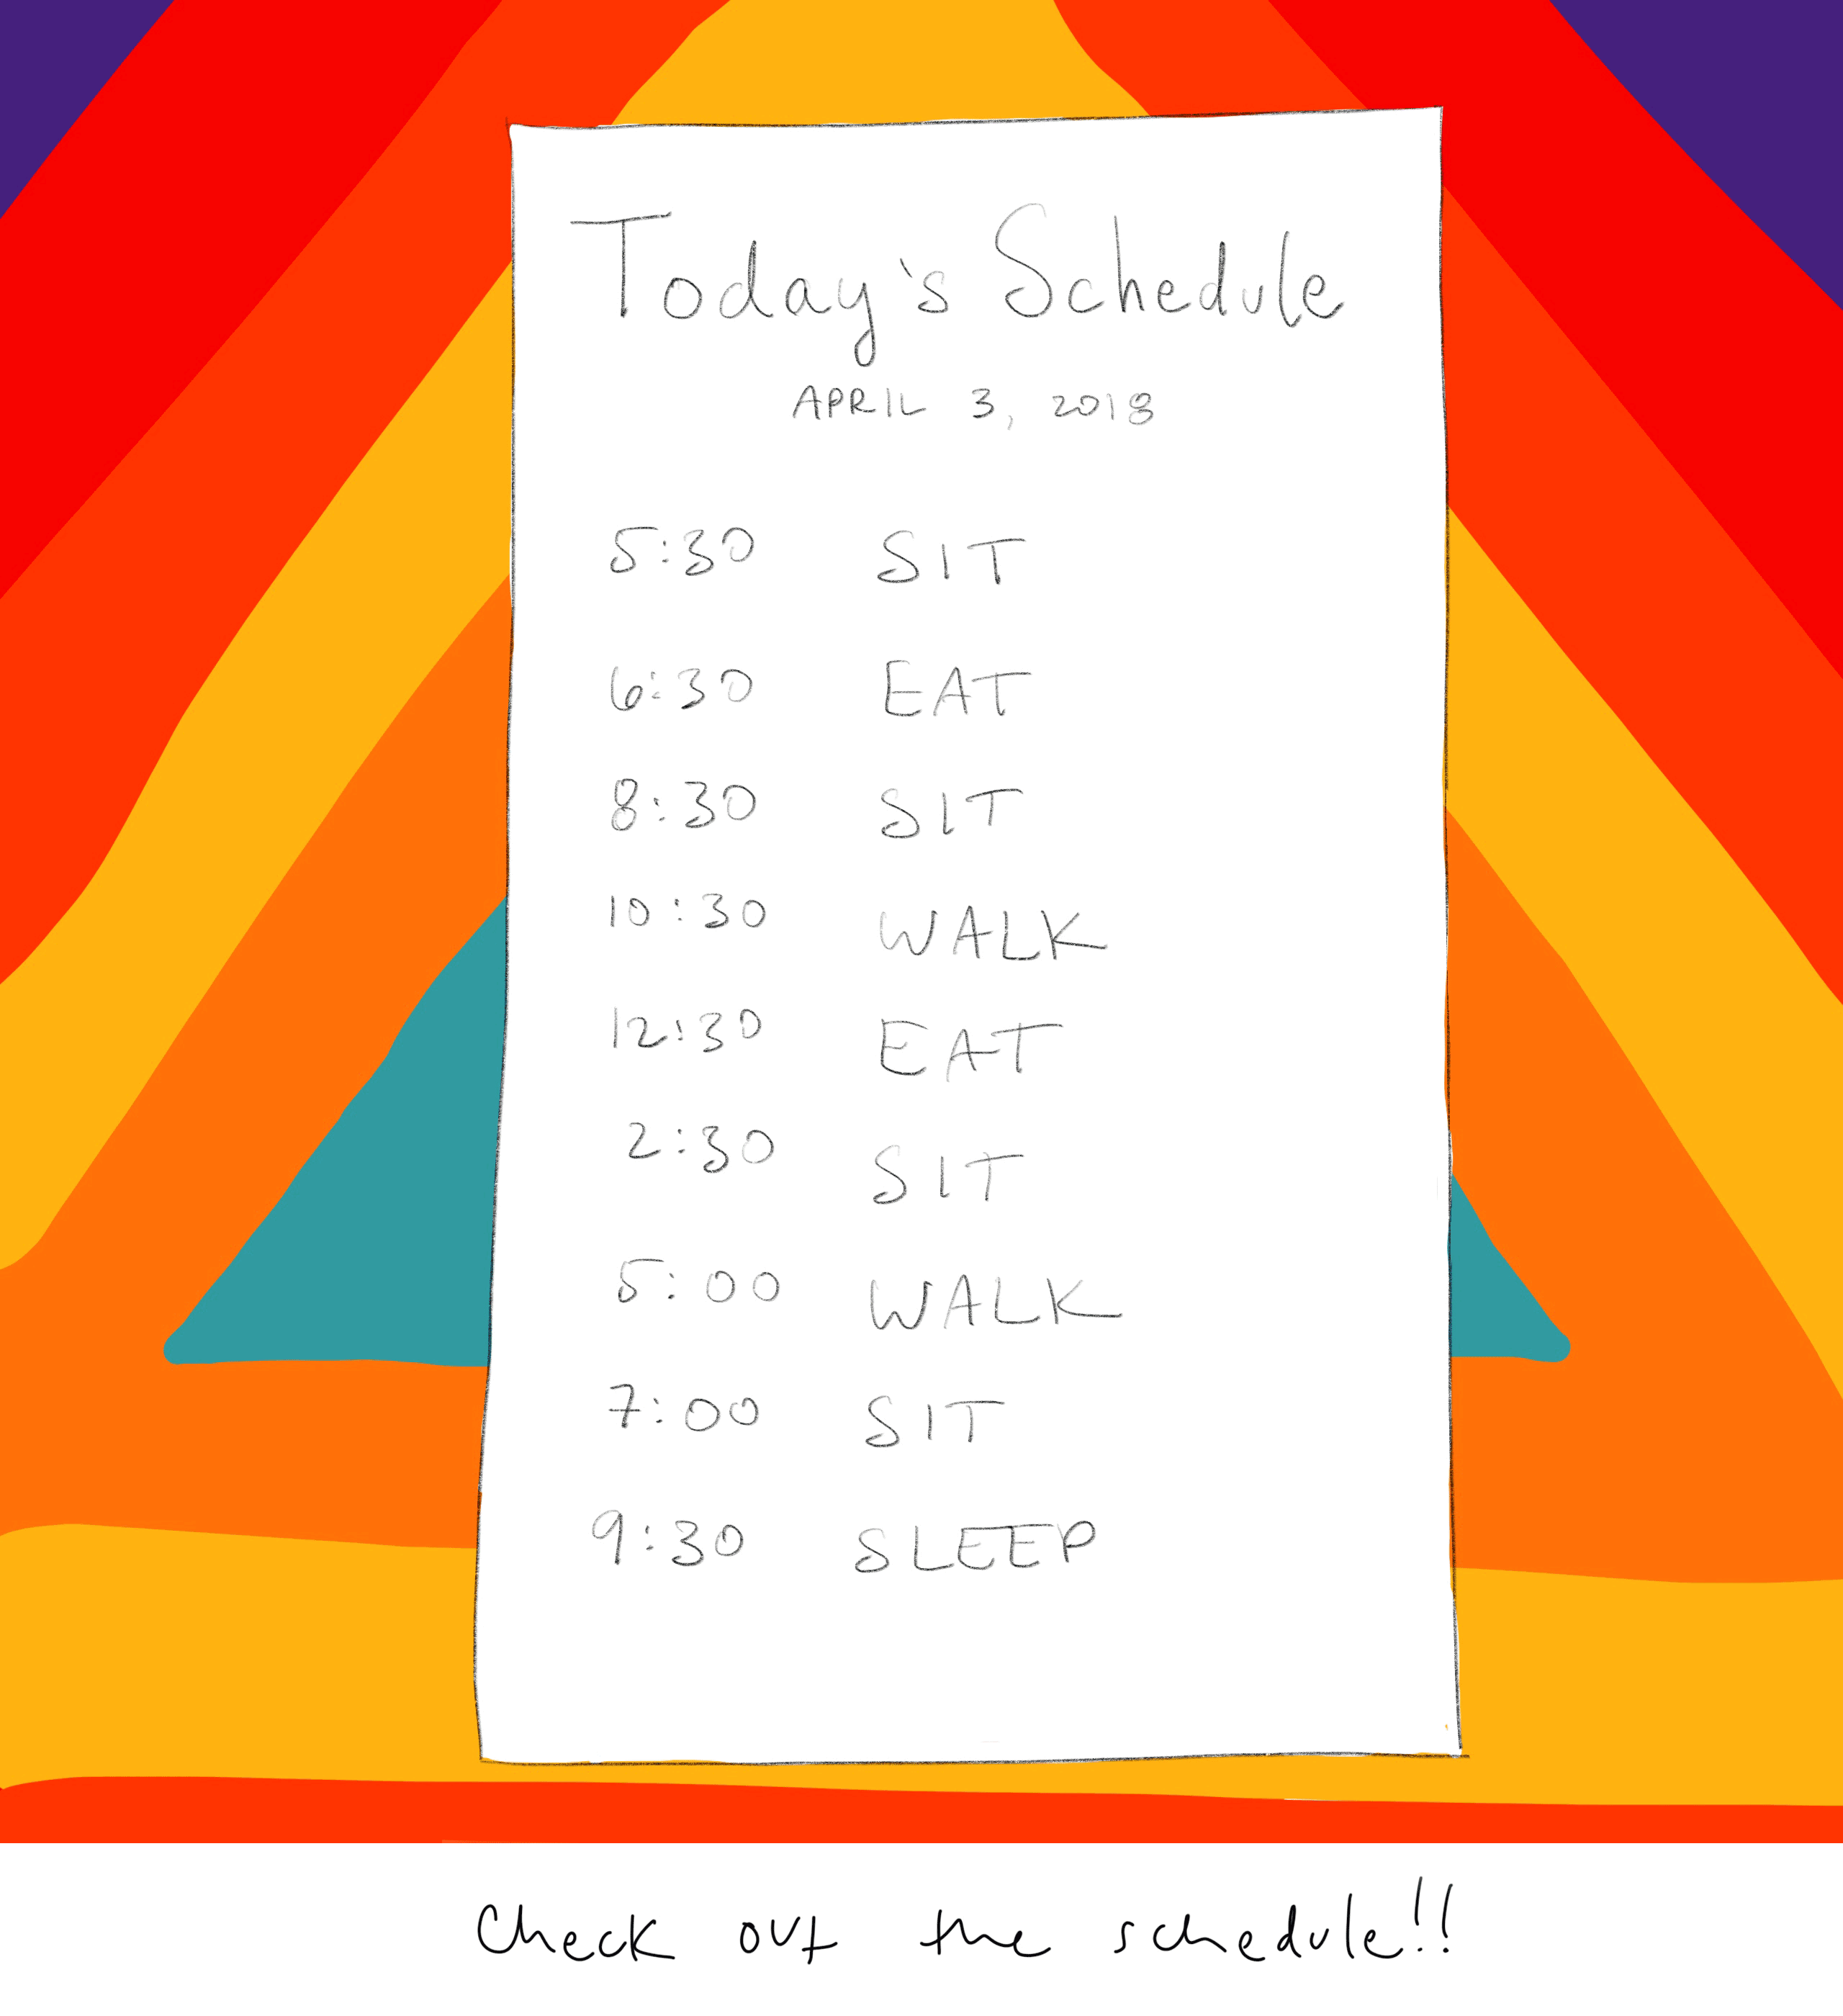 Today's Schedule
APRIL 3, 2018
5:30 SIT
6:30 EAT
8:30 SIT
10:30 WALK
12:30 EAT
2:30 SIT
5:00 WALK
7:00 SIT
9:30 SLEEP
Check out the schedule!!